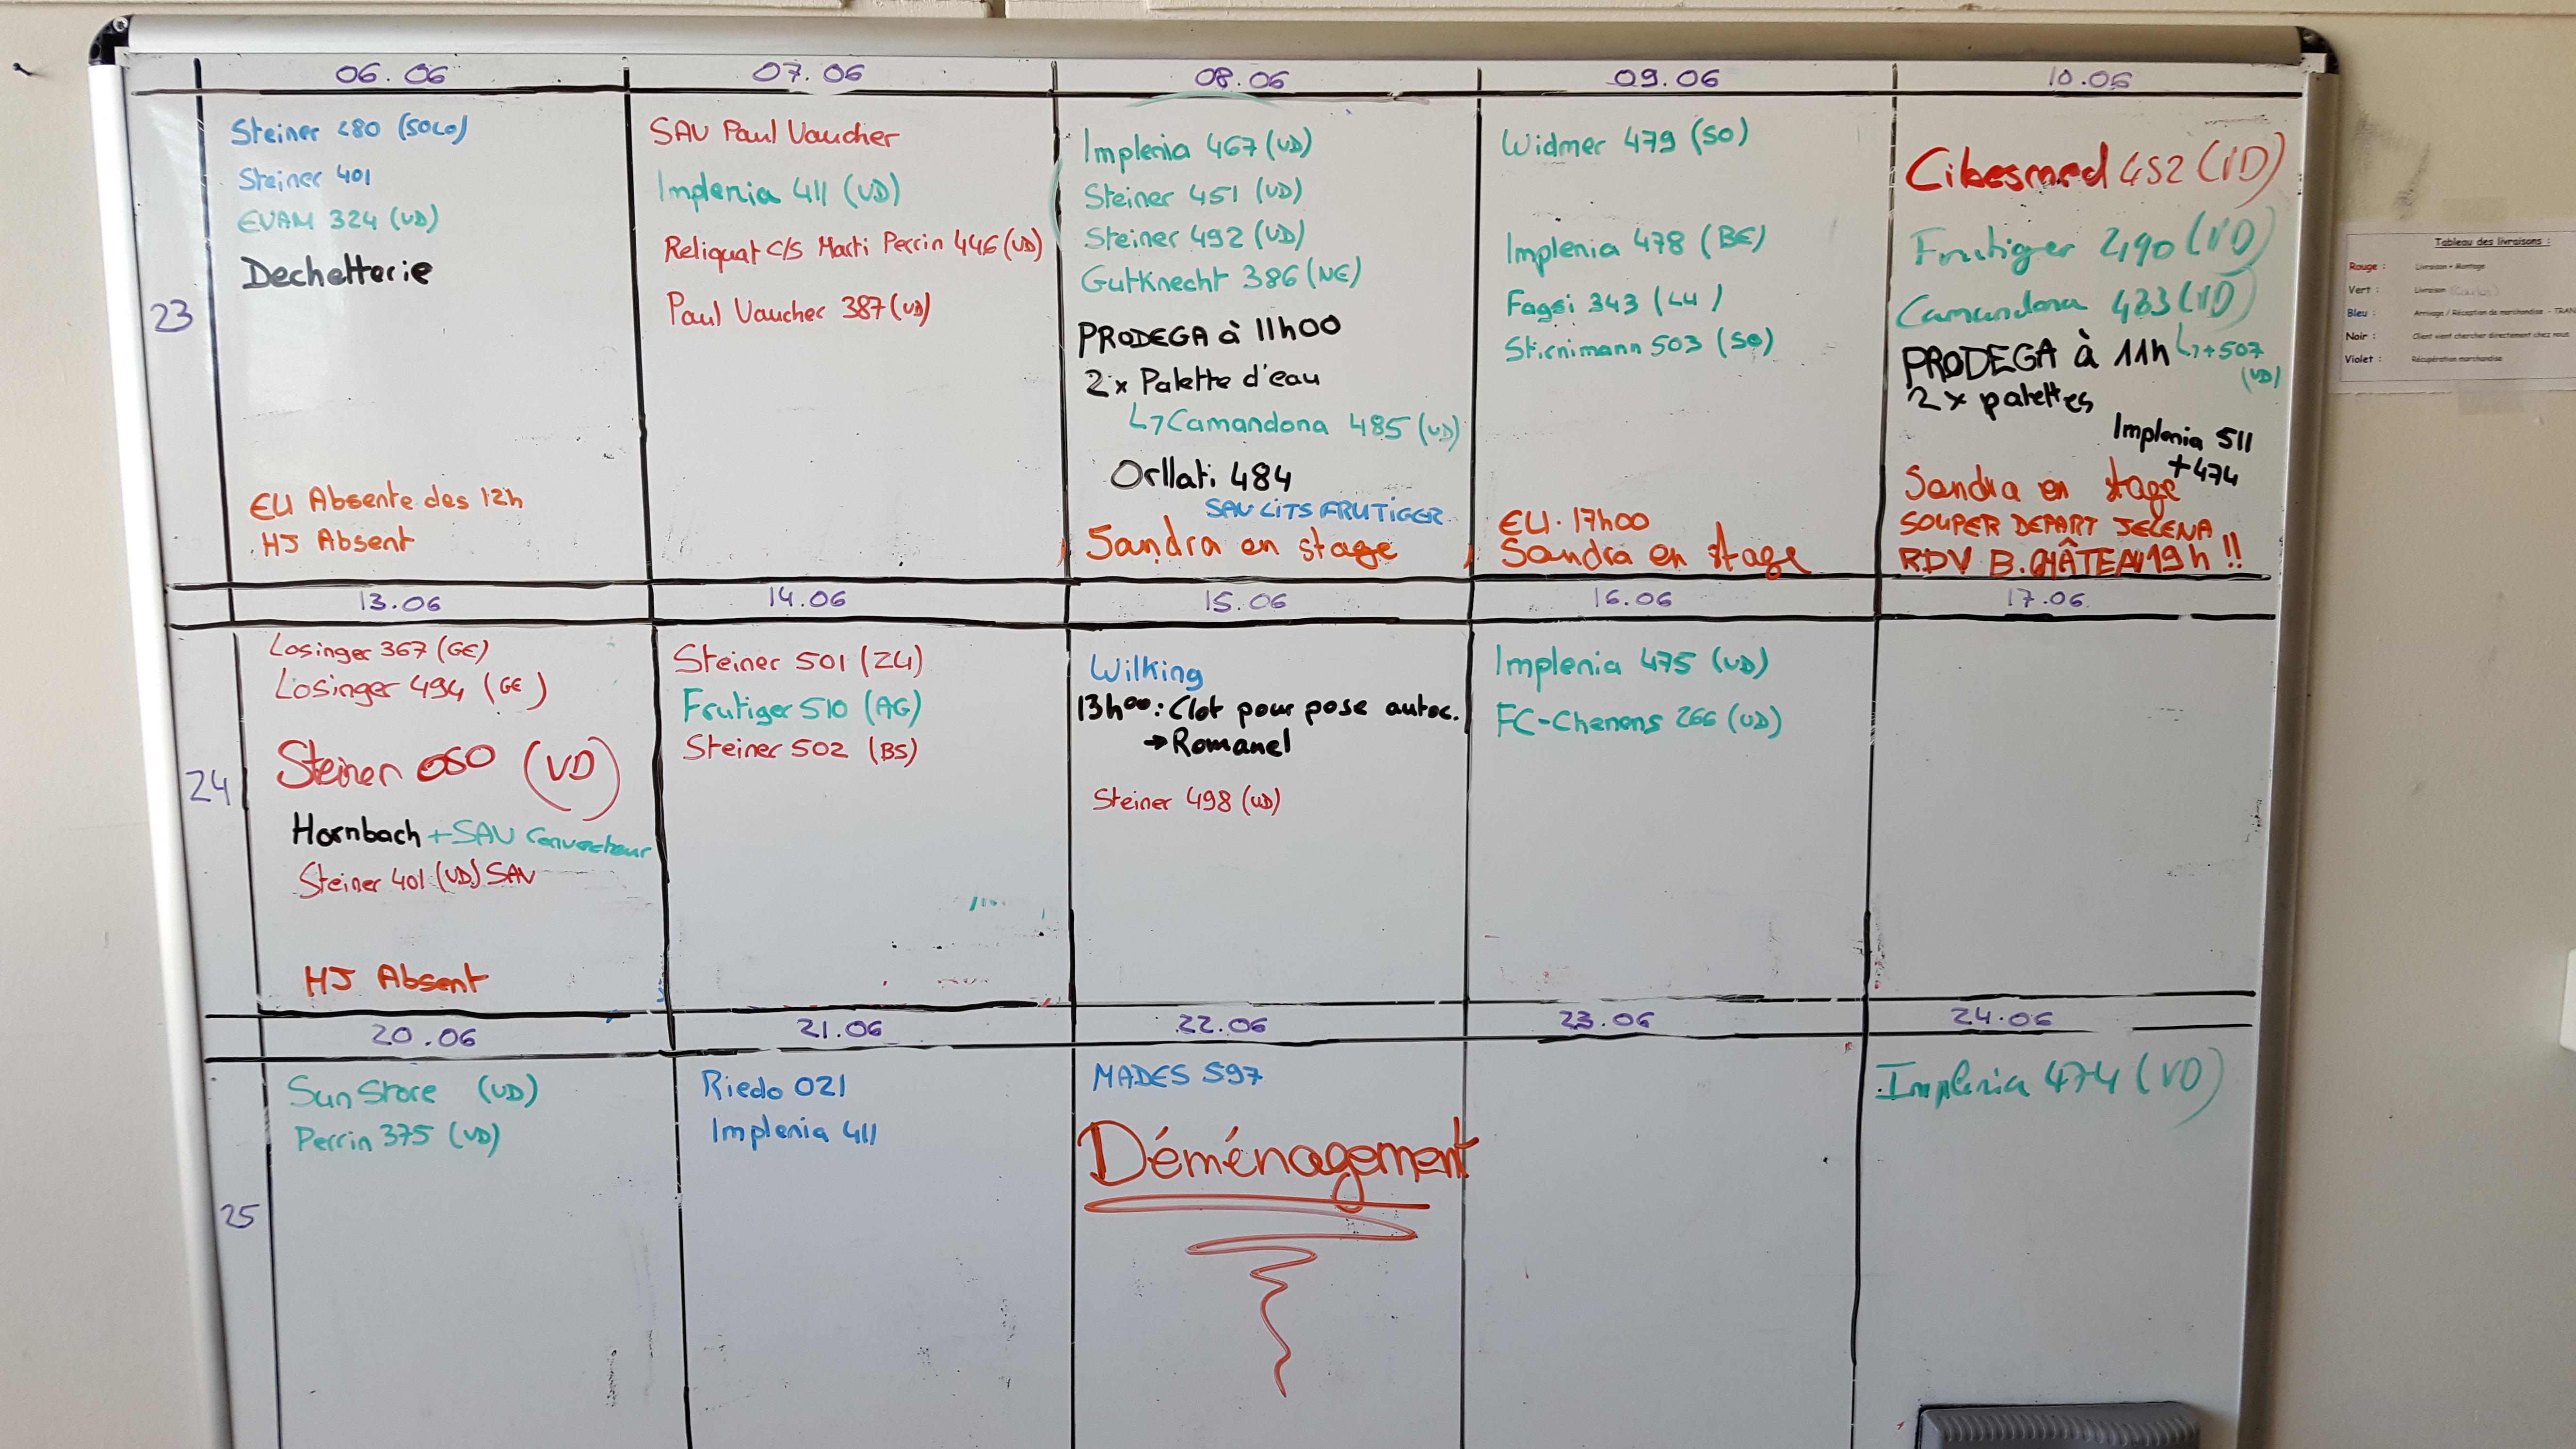 06.06
07.06
08.06
09.06
10.06
23
Steiner 280 (SOLO)
Steiner 401
EVAM 324 (VD)
Dechetterie
EU Absente des 12h
HJ Absent
SAV Paul Vaucher
Implenia 411 (VD)
Reliquat C/S Marti Perrin 446 (VD)
Paul Vaucher 387 (VD)
Implenia 467 (VD)
Steiner 451 (VD)
Steiner 492 (VD)
Gutknecht 386 (NE)
PRODEGA à 11h00
2x Palette d'eau
↳ Camandona 485 (VD)
Orllati 484
SAV LITS FRUTIGER
Sandra en stage
Widmer 479 (SO)
Implenia 478 (BE)
Fagsi 343 (LU)
Stirnimann 503 (SO)
17h00
Sandra en stage
Cibesmed 452 (VD)
Frutiger 490 (VD)
Camandona 433 (VD)
PRODEGA à 11h ↳ +507
(VD)
2x palettes
Implenia 511
+474
Sandra en stage
SOUPER DEPART JELENA
RDV B. CHÂTEAU 19h !!
13.06
14.06
15.06
16.06
17.06
24
Losinger 367 (GE)
Losinger 494 (GE)
Steiner 060 (VD)
Hornbach + SAV Convecteur
Steiner 401 (VD) SAV
HJ Absent
Steiner 501 (ZU)
Frutiger 510 (AG)
Steiner 502 (BS)
Wilking
13h00: Clot pour pose autoc.
→ Romanel
Steiner 498 (VD)
Implenia 475 (VD)
FC-Chenens 266 (VD)
20.06
21.06
22.06
23.06
24.06
25
Sun Store (VD)
Perrin 375 (VD)
Riedo 021
Implenia 411
MADES 597
Déménagement
Implenia 474 (VD)
Tableau des livraisons :
Rouge : Livraison + Montage
Vert : Livraison
Bleu : Arrivage / Réception de marchandise - TRAN
Noir : Client vient chercher directement chez nous
Violet : Récupération marchandise